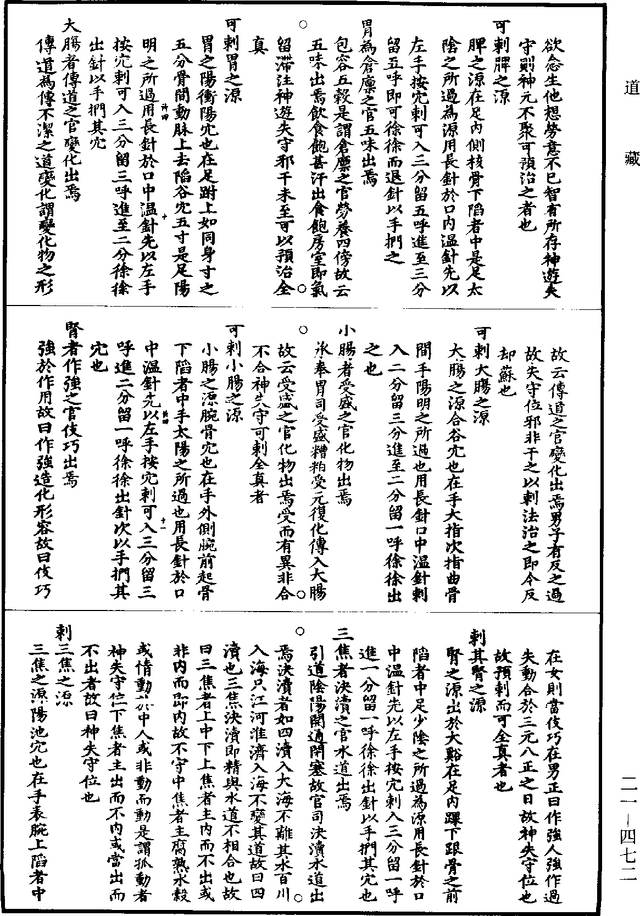 道藏
欲念生他想勞意不已智有所存神遊失
守則神元不聚可預治之者也
可刺脾之源
脾之源在足內側核骨下陷者中是足太
陰之所過為源用長針於口內溫針先以
左手按穴刺可入三分留五呼進至三分
留五呼即可徐徐而退針以手捫之
胃為倉廩之官五味出焉
包容五穀是謂倉廩之官勞養四傍故云
五味出焉飲食飽甚汗出食飽房室即氣
留滯注神遊失守邪干未至可以預治全
真
可刺胃之源
胃之陽衝陽穴也在足跗上如同身寸之
五分骨間動脉上去陷谷穴五寸是足陽
明之所過用長針於口中溫針先以左手
按穴刺可入三分留三呼進至二分徐徐
出針以手捫其穴
大腸者傳道之官變化出焉
傳道為傳不潔之道變化謂變化物之形
故云傳道之官變化出焉男子有反之過
故失守位邪非干之以刺法治之即令反
却蘇也
可刺大腸之源
大腸之源合谷穴也在手大指次指曲骨
間手陽明之所過也用長針口中溫針刺
入二分留三分進至二分留一呼徐徐出
之也
小腸者受盛之官化物出焉
承奉胃司受盛糟粕受元復化傳入大腸
故云受盛之官化物出焉受而有異非合
不合神失守可刺全真者
可刺小腸之源
小腸之源腕骨穴也在手外側腕前起骨
下陷者中手太陽之所過也用長針於口
中溫針先以左手按穴刺可入三分留三
呼進二分留一呼徐徐出針次以手捫其
穴也
腎者作強之官伎巧出焉
強於作用故曰作強造化形容故曰伎巧
在女則當伎巧在男正曰作強人強作過
失動合於三元八正之日故神失守位也
故預刺而可全真者也
刺其腎之源
腎之源出於大谿在足內踝下跟骨之前
陷者中足少陰之所過為源用長針於口
中溫針先以左手按穴刺入三分留一呼
進一分留一呼徐徐出針以手捫其穴也
三焦者決瀆之官水道出焉
引道陰陽開通閉塞故官司決瀆水道出
焉決瀆者如四瀆入大海不離其水百川
入海只江河淮濟入海不變其道故曰四
瀆也三焦決瀆即精與水道不相合也故
曰三焦者上中下上焦者主內而不出或
非內而即內故不守中焦者主腐熟水穀
或情動於中人或非動而動是謂孤動者
神失守位下焦者主出而不內或當出而
不出者故曰神失守位也
刺三焦之源
三焦之源陽池穴也在手表腕上陷者中
二一—四七二